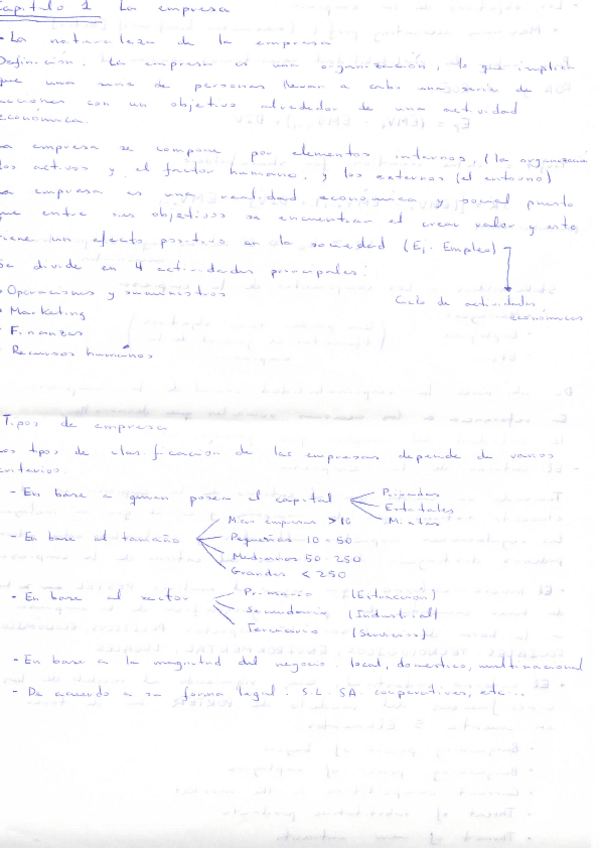 Capitulo 1 La empresa
- La naturaleza de la empresa
Definición. La empresa es una organización, lo que implica
que una suma de personas llevar a cabo una serie de
acciones con un objetivo alrededor de una actividad
económica.
La empresa se compone por elementos internos, (la organización
los activos y el factor humano, y los externos (el entorno)
La empresa es una realidad económica y social puesto
que entre sus objetivos se encuentran el crear valor y esto
tiene un efecto positivo en la sociedad (Ej. Empleo)
Se divide en 4 actividades principales:
Ciclo de actividades
económicas
- Operaciones y suministros
- Marketing
- Finanzas
- Recursos humanos
Tipos de empresa
Los tipos de clasificación de las empresas depende de varios
criterios.
- En base a quien posea el capital
Privadas
Estatales
Mixtas
- En base al tamaño
Micro empresas >10
Pequeñas 10 - 50
Medianas 50 - 250
Grandes < 250
- En base al sector
Primario (Extracción)
Secundario (Industrial)
Terciario (Servicios)
- En base a la magnitud del negocio. local, domestico, multinacional
- De acuerdo a su forma legal. S.L. SA. cooperativas, etc...